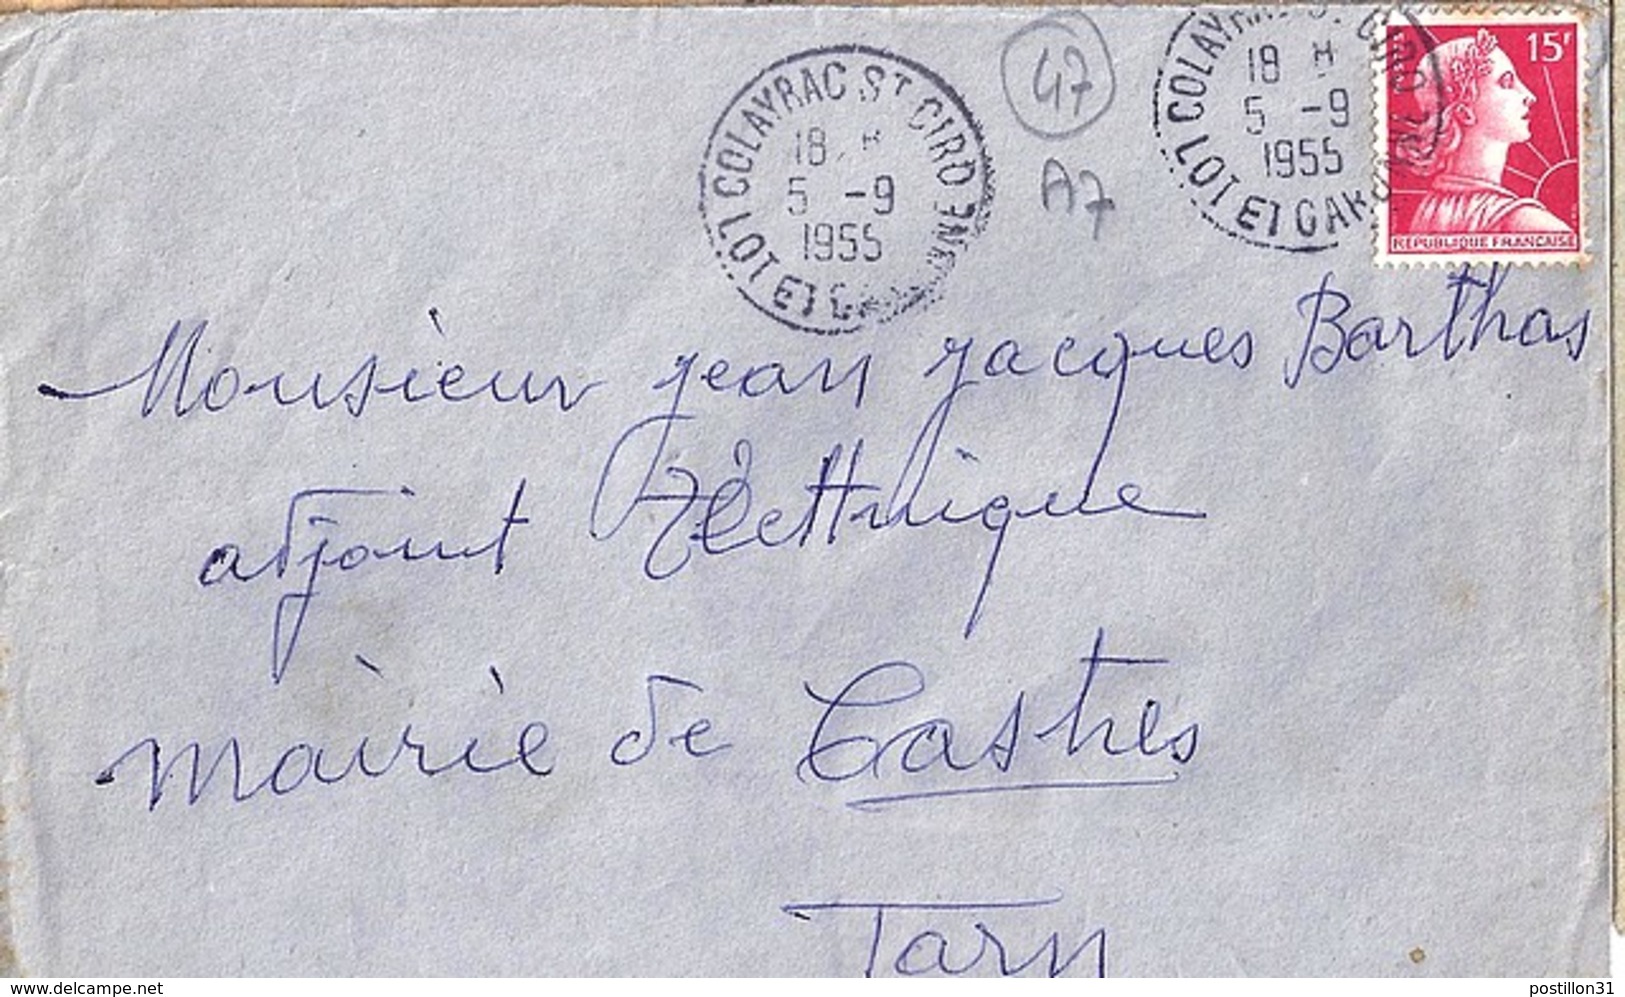 COLAYRAC ST CIRQ
LOT ET GARONNE
18 H
5 -9
1955
47
A7
COLAYRAC ST CIRQ
LOT ET GARONNE
18 H
5 -9
1955
15F
RÉPUBLIQUE FRANÇAISE
Monsieur Jean Jacques Barthas
adjoint Technique
Mairie de Castres
Tarn
www.delcampe.net
postillon31